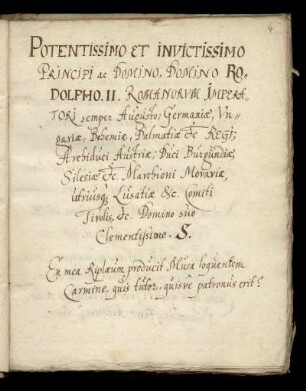 POTENTISSIMO ET INVICTISSIMO
PRINCIPI ac DOMINO, DOMINO RO-
DOLPHO. II. ROMANORVM IMPERA-
TORI semper Augusto; Germaniæ, Vn-
gariæ, Bohemiæ, Dalmatiæ &c REGI;
Archiduci Austriæ; Duci Burgundiæ,
Silesiæ &c. Marchioni Moraviæ,
utriusq; Lusatiæ &c. Comiti
Tirolis, &c. Domino suo
Clementissimo. S.
En mea Riplæum producit Musa loquentem
Carmine, quis tutor, quisve patronus erit?